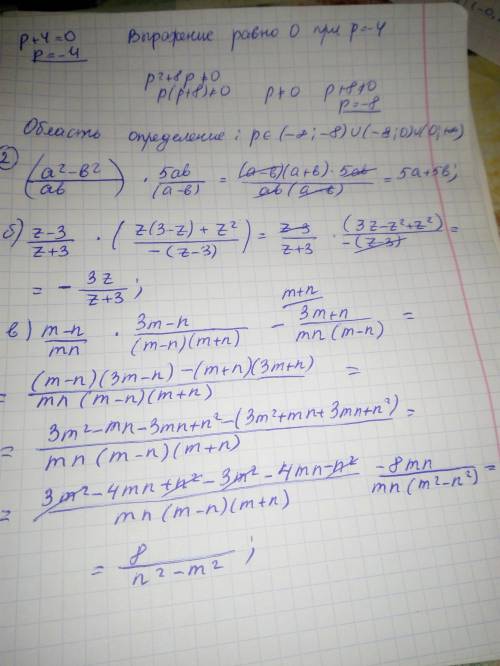 p+4=0 Выражение равно 0 при p=-4
p=-4
p²+8p≠0
p(p+8)≠0 p≠0 p+8≠0
p=-8
Область определение: p∈(-∞;-8)∪(-8;0)∪(0;+∞)
2 ((a²-в²)/aв) · 5aв/(a-в) = (a-в)(a+в)·5aв/aв(a-в) = 5a+5в;
б) (z-3)/(z+3) · ((z(3-z)+z²)/-(z-3)) = (z-3)/(z+3) · (3z-z²+z²)/-(z-3) =
= - 3z/(z+3);
в) (m-n)/mn · (3m-n)/(m-n)(m+n) - (m+n/ 3m+n)/mn(m-n) =
= ((m-n)(3m-n)-(m+n)(3m+n))/mn(m-n)(m+n) =
= (3m²-mn-3mn+n²-(3m²+mn+3mn+n²))/mn(m-n)(m+n) =
= (3m²-4mn+n²-3m²-4mn-n²)/mn(m-n)(m+n) -8mn/mn(m²-n²) =
= 8/(n²-m²);